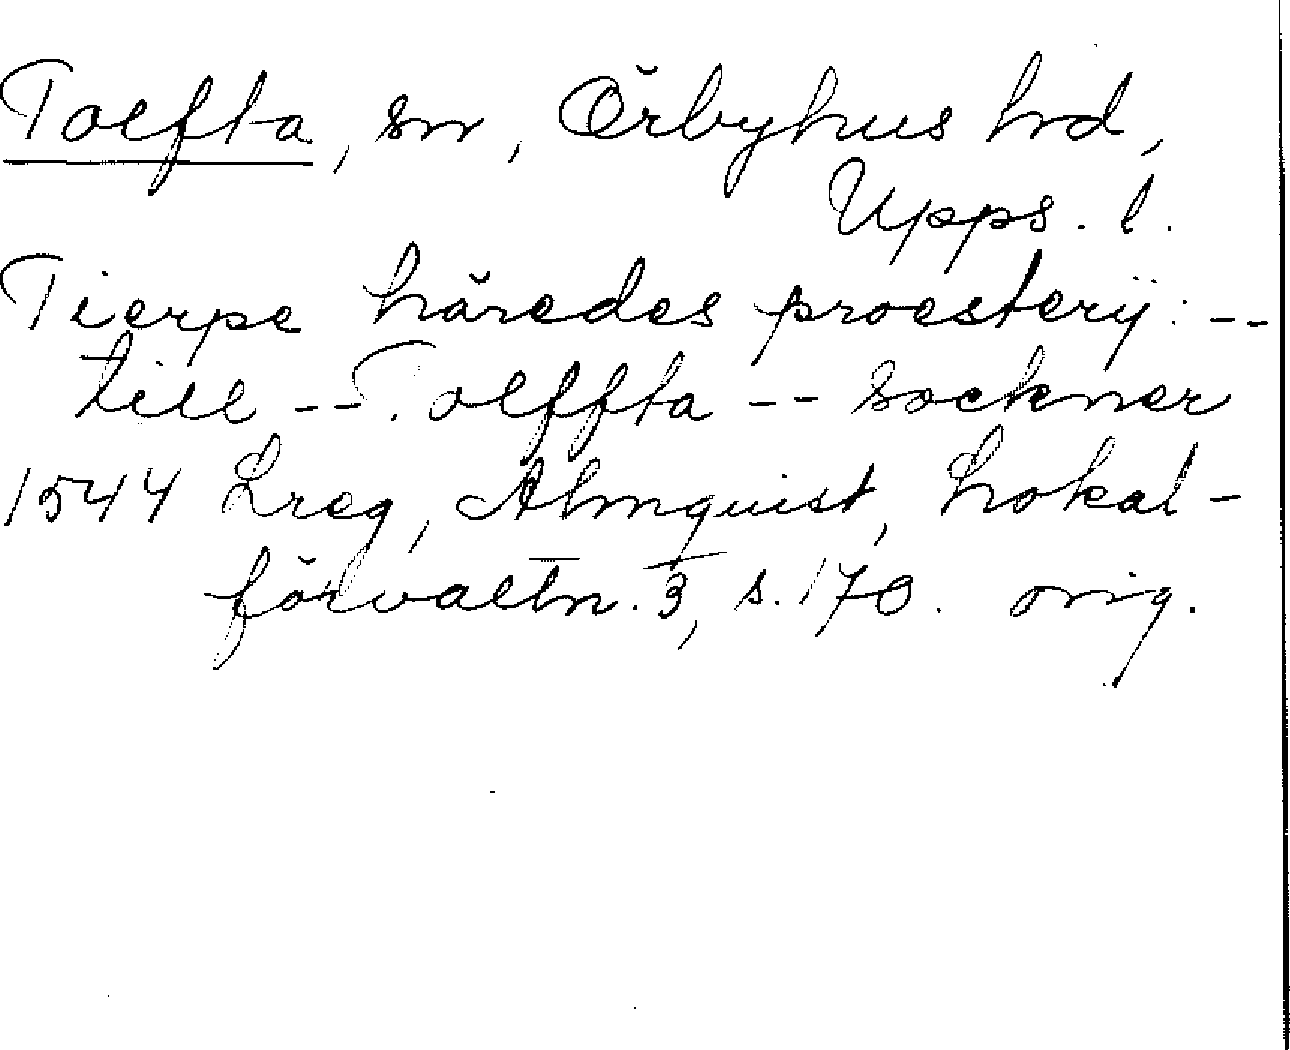 Tolfta, sn, Örbyhus hd,
Upps. l.
Tierpe häredes proesterij: --
till -- Tolffta -- sockner
1544 Lreg, Almquist, Lokal-
förvaltn. 3, s. 170. orig.